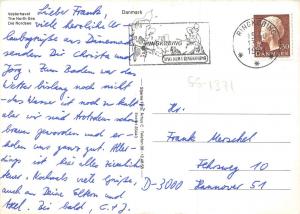 Vesterhavet
The North Sea
Die Nordsee
Danmark
Lieber Frank,
viele herzliche
aus Dänemark
senden Dir Christa und
Jörg. Zum Baden war das
Wetter bislang noch nicht
- das Wasser ist noch zu kalt
aber wir sind trotzdem schon
braun geworden und er-
holen uns ganz gut. Aller-
dings ist bei alle ziemlich
teuer. Nochmals viele Grüße,
auch an Deine Eltern und
Axel. Bis bald, C.+J.
RINGKØBING
RINGKØBING
55-1371
Hr.
Frank Herschel
Fehsweg 10
D-3000 Hannover 51